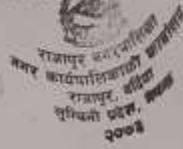 राजापुर नगरपालिका
नगर कार्यपालिकाको कार्यालय
राजापुर, बर्दिया
लुम्बिनी प्रदेश, नेपाल
२००३